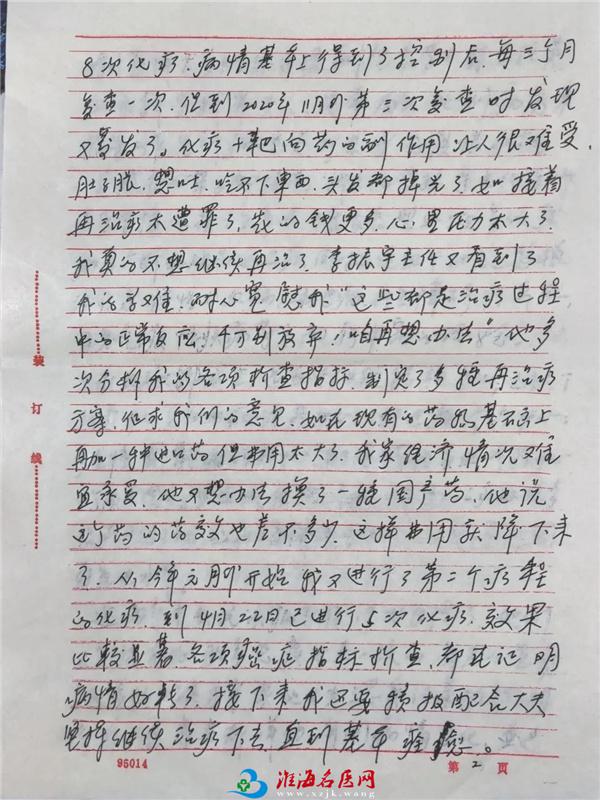 8次化疗,病情基本上得到了控制后,每三个月
复查一次,但到2020年11月份第三次复查时发现
又复发了。化疗+靶向药的副作用让人很难受,
肚子胀,想吐,吃不下东西,头发都掉光了,如接着
再治疗太遭罪了,花的钱更多,心里压力太大了.
我真的不想继续再治了.李振宇主任又看到了
我的苦难,耐心宽慰我"这些都是治疗过程
中的正常反应,千万别放弃!咱再想办法"他多
次分析我的各项检查指标,制定了多种再治疗
方案,征求我们的意见,如在现有的药物基础上
再加一种进口药但费用太大了.我家经济情况难
宜承受,他又想办法换了一种国产药,他说
这个药的药效也差不多少,这样费用就降下来
了.从今年元月份开始我又进行了第二个疗程
的化疗,到4月22日已进行5次化疗,效果
比较显著各项癌症指标检查,都在证明
病情好转了.接下来我还要积极配合大夫
坚持继续治疗下去,直到基本痊愈。
装
订
线
96014
第2页
淮海名医网
www.xzjk.wang